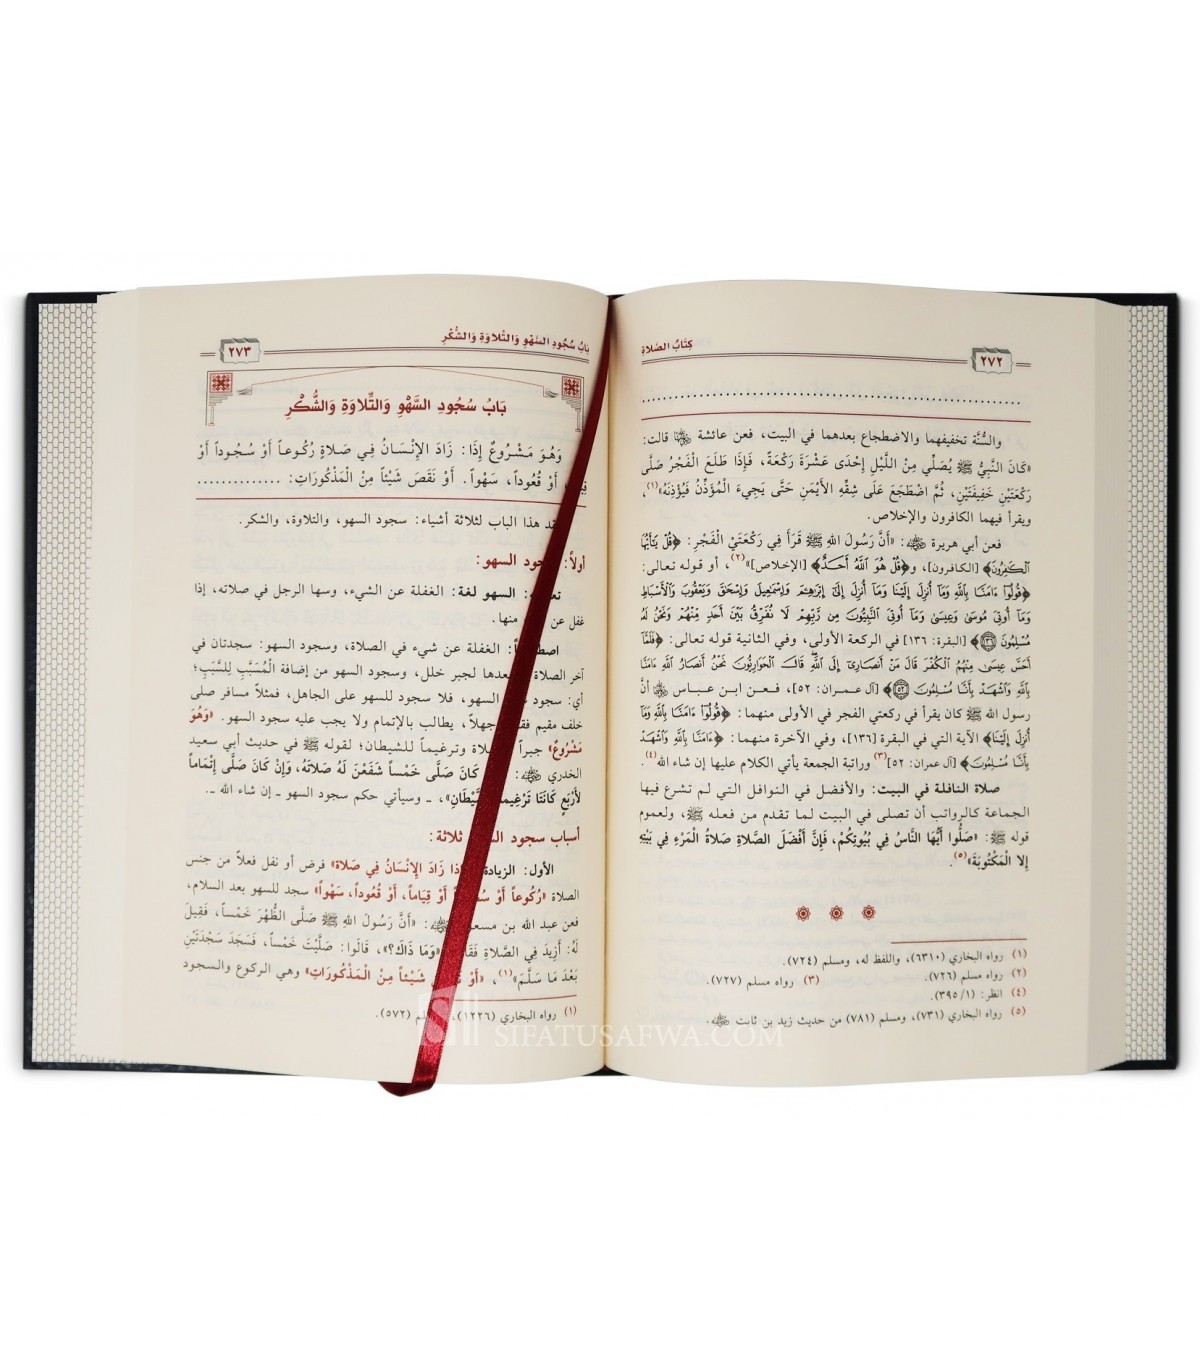 ٢٧٢
كِتَابُ الصَّلاةِ
والسُّنَّة تخفيفهما والاضطجاع بعدهما في البيت، فعن عائشة رضي الله عنها قالت:
«كَانَ النَّبِيُّ ﷺ يُصَلِّي مِنْ اللَّيْلِ إِحْدَى عَشْرَةَ رَكْعَةً، فَإِذَا طَلَعَ الْفَجْرُ صَلَّى
رَكْعَتَيْنِ خَفِيفَتَيْنِ، ثُمَّ اضْطَجَعَ عَلَى شِقِّهِ الأَيْمَنِ حَتَّى يَجِيءَ الْمُؤَذِّنُ فَيُؤْذِنَهُ»(١)،
ويقرأ فيهما الكافرون والإخلاص.
فعن أبي هريرة رضي الله عنه: «أَنَّ رَسُولَ اللهِ ﷺ قَرَأَ فِي رَكْعَتَيْ الْفَجْرِ: ﴿قُلْ يَٰٓأَيُّهَا
ٱلْكَٰفِرُونَ﴾ [الكافرون]، و﴿قُلْ هُوَ ٱللَّهُ أَحَدٌ﴾ [الإخلاص]»(٢)، أو قوله تعالى:
﴿قُولُوٓا۟ ءَامَنَّا بِٱللَّهِ وَمَآ أُنزِلَ إِلَيْنَا وَمَآ أُنزِلَ إِلَىٰٓ إِبْرَٰهِۦمَ وَإِسْمَٰعِيلَ وَإِسْحَٰقَ وَيَعْقُوبَ وَٱلْأَسْبَاطِ
وَمَآ أُوتِىَ مُوسَىٰ وَعِيسَىٰ وَمَآ أُوتِىَ ٱلنَّبِيُّونَ مِن رَّبِّهِمْ لَا نُفَرِّقُ بَيْنَ أَحَدٍ مِّنْهُمْ وَنَحْنُ لَهُۥ
مُسْلِمُونَ ١٣٦﴾ [البقرة: ١٣٦] في الركعة الأولى، وفي الثانية قوله تعالى: ﴿فَلَمَّآ
أَحَسَّ عِيسَىٰ مِنْهُمُ ٱلْكُفْرَ قَالَ مَنْ أَنصَارِىٓ إِلَى ٱللَّهِ قَالَ ٱلْحَوَارِيُّونَ نَحْنُ أَنصَارُ ٱللَّهِ ءَامَنَّا
بِٱللَّهِ وَٱشْهَدْ بِأَنَّا مُسْلِمُونَ ٥٢﴾ [آل عمران: ٥٢]، فـعـن ابـن عـبـاس رضي الله عنه أنَّ
رسول الله ﷺ كان يقرأ في ركعتي الفجر في الأولى منهما: ﴿قُولُوٓا۟ ءَامَنَّا بِٱللَّهِ وَمَآ
أُنزِلَ إِلَيْنَا﴾ الآية التي في البقرة [١٣٦]، وفي الآخرة منهما: ﴿ءَامَنَّا بِٱللَّهِ وَٱشْهَدْ
بِأَنَّا مُسْلِمُونَ﴾ [آل عمران: ٥٢](٣) وراتبة الجمعة يأتي الكلام عليها إن شاء الله(٤).
صلاة النافلة في البيت: والأفضل في النوافل التي لم تشرع فيها
الجماعة كالرواتب أن تصلى في البيت لما تقدم من فعله ﷺ، ولعموم
قوله ﷺ: «صَلُّوا أَيُّهَا النَّاسُ فِي بُيُوتِكُمْ، فَإِنَّ أَفْضَلَ الصَّلاةِ صَلاةُ الْمَرْءِ فِي بَيْتِهِ
إِلا الْمَكْتُوبَةَ»(٥).
(١) رواه البخاري (٦٣١٠)، واللفظ له، ومسلم (٧٢٤).
(٢) رواه مسلم (٧٢٦). (٣) رواه مسلم (٧٢٧).
(٤) انظر: (١/ ٣٩٥).
(٥) رواه البخاري (٧٣١)، ومسلم (٧٨١) من حديث زيد بن ثابت رضي الله عنه.
بَابُ سُجُودِ السَّهْوِ وَالتِّلاوَةِ وَالشُّكْرِ
٢٧٣
بَابُ سُجُودِ السَّهْوِ وَالتِّلاوَةِ وَالشُّكْرِ
وَهُوَ مَشْرُوعٌ إِذَا: زَادَ الإِنْسَانُ فِي صَلاةٍ رُكُوعاً أَوْ سُجُوداً أَوْ
أَوْ قُعُوداً، سَهْواً. أَوْ نَقَصَ شَيْئاً مِنْ الْمَذْكُورَاتِ: ..............
هذا الباب لثلاثة أشياء: سجود السهو، والتلاوة، والشكر.
أولاً: السهو:
السهو لغة: الغفلة عن الشيء، وسها الرجل في صلاته، إذا
غفل عن منها.
الغفلة عن شيء في الصلاة، وسجود السهو: سجدتان في
آخر الصلاة لجبر خلل، وسجود السهو من إضافة الْمُسَبَّبِ لِلسَّبَبِ؛
أي: سجود السهو، فلا سجود للسهو على الجاهل، فمثلاً مسافر صلى
خلف مقيم جهلاً، يطالب بالإتمام ولا يجب عليه سجود السهو. «وَهُوَ
مَشْرُوعٌ» جبراً وترغيماً للشيطان؛ لقوله ﷺ في حديث أبي سعيد
الخدري رضي الله عنه: كَانَ صَلَّى خَمْساً شَفَعْنَ لَهُ صَلاتَهُ، وَإِنْ كَانَ صَلَّى إِتْمَاماً
لأَرْبَعٍ كَانَتَا تَرْغِيماً ، ـ وسيأتي حكم سجود السهو ـ إن شاء الله ـ.
أسباب سجود ثلاثة:
الأول: الزيادة زَادَ الإِنْسَانُ فِي صَلاة» فرض أو نفل فعلاً من جنس
الصلاة «رُكُوعاً أَوْ أَوْ قِيَاماً، أَوْ قُعُوداً، سَهْواً» سجد للسهو بعد السلام،
فعن عبد الله بن مسعود رضي الله عنه: «أَنَّ رَسُولَ اللهِ ﷺ صَلَّى الظُّهْرَ خَمْساً، فَقِيلَ
لَهُ: أَزِيدَ فِي الصَّلاةِ «وَمَا ذَاكَ؟»، قَالُوا: صَلَّيْتَ خَمْساً، فَسَجَدَ سَجْدَتَيْنِ
بَعْدَ مَا سَلَّمَ»(١)، «أَوْ شَيْئاً مِنْ الْمَذْكُورَاتِ» وهي الركوع والسجود
(١) رواه البخاري (١٢٢٦)، (٥٧٢).
SIFATUSAFWA.COM